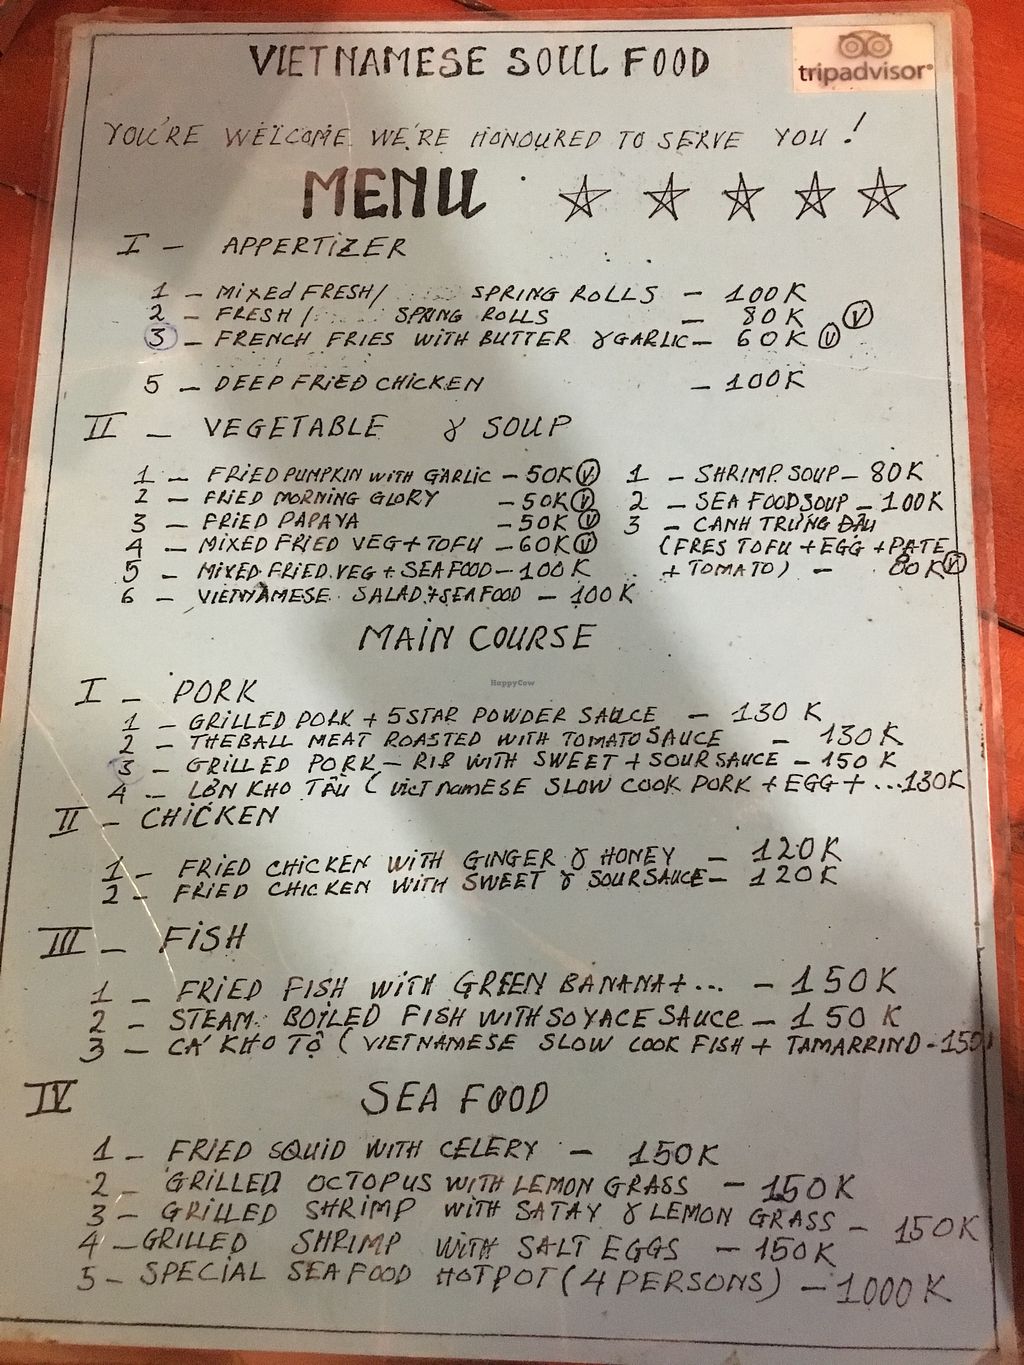 VIETNAMESE SOUL FOOD
tripadvisor®
YOU'RE WELCOME WE'RE HONOURED TO SERVE YOU!
MENU
I - APPERTIZER
1 - MIXED FRESH/ SPRING ROLLS - 100K
2 - FRESH / SPRING ROLLS - 80K V
3 - FRENCH FRIES WITH BUTTER & GARLIC - 60K V
5 - DEEP FRIED CHICKEN - 100K
II - VEGETABLE & SOUP
1 - FRIED PUMPKIN WITH GARLIC - 50K V
2 - FRIED MORNING GLORY - 50K V
3 - FRIED PAPAYA - 50K V
4 - MIXED FRIED VEG + TOFU - 60K V
5 - MIXED FRIED VEG + SEAFOOD - 100K
6 - VIETNAMESE SALAD + SEAFOOD - 100K
1 - SHRIMP SOUP - 80K
2 - SEA FOOD SOUP - 100K
3 - CANH TRỨNG ĐẬU
(FRES TOFU + EGG + PATE
+ TOMATO) - 80K V
MAIN COURSE
HappyCow
I - PORK
1 - GRILLED PORK + 5STAR POWDER SAUCE - 130K
2 - THEBALL MEAT ROASTED WITH TOMATO SAUCE - 130K
3 - GRILLED PORK - RIB WITH SWEET + SOUR SAUCE - 150K
4 - LỢN KHO TẦU (VIETNAMESE SLOW COOK PORK + EGG + ... 130K
II - CHICKEN
1 - FRIED CHICKEN WITH GINGER & HONEY - 120K
2 - FRIED CHICKEN WITH SWEET & SOUR SAUCE - 120K
III - FISH
1 - FRIED FISH WITH GREEN BANANA + ... - 150K
2 - STEAM BOILED FISH WITH SOYACE SAUCE - 150K
3 - CÁ KHO TỘ (VIETNAMESE SLOW COOK FISH + TAMARRIND - 150
IV SEA FOOD
1 - FRIED SQUID WITH CELERY - 150K
2 - GRILLED OCTOPUS WITH LEMON GRASS - 150K
3 - GRILLED SHRIMP WITH SATAY & LEMON GRASS - 150K
4 - GRILLED SHRIMP WITH SALT EGGS - 150K
5 - SPECIAL SEA FOOD HOTPOT (4 PERSONS) - 1000K